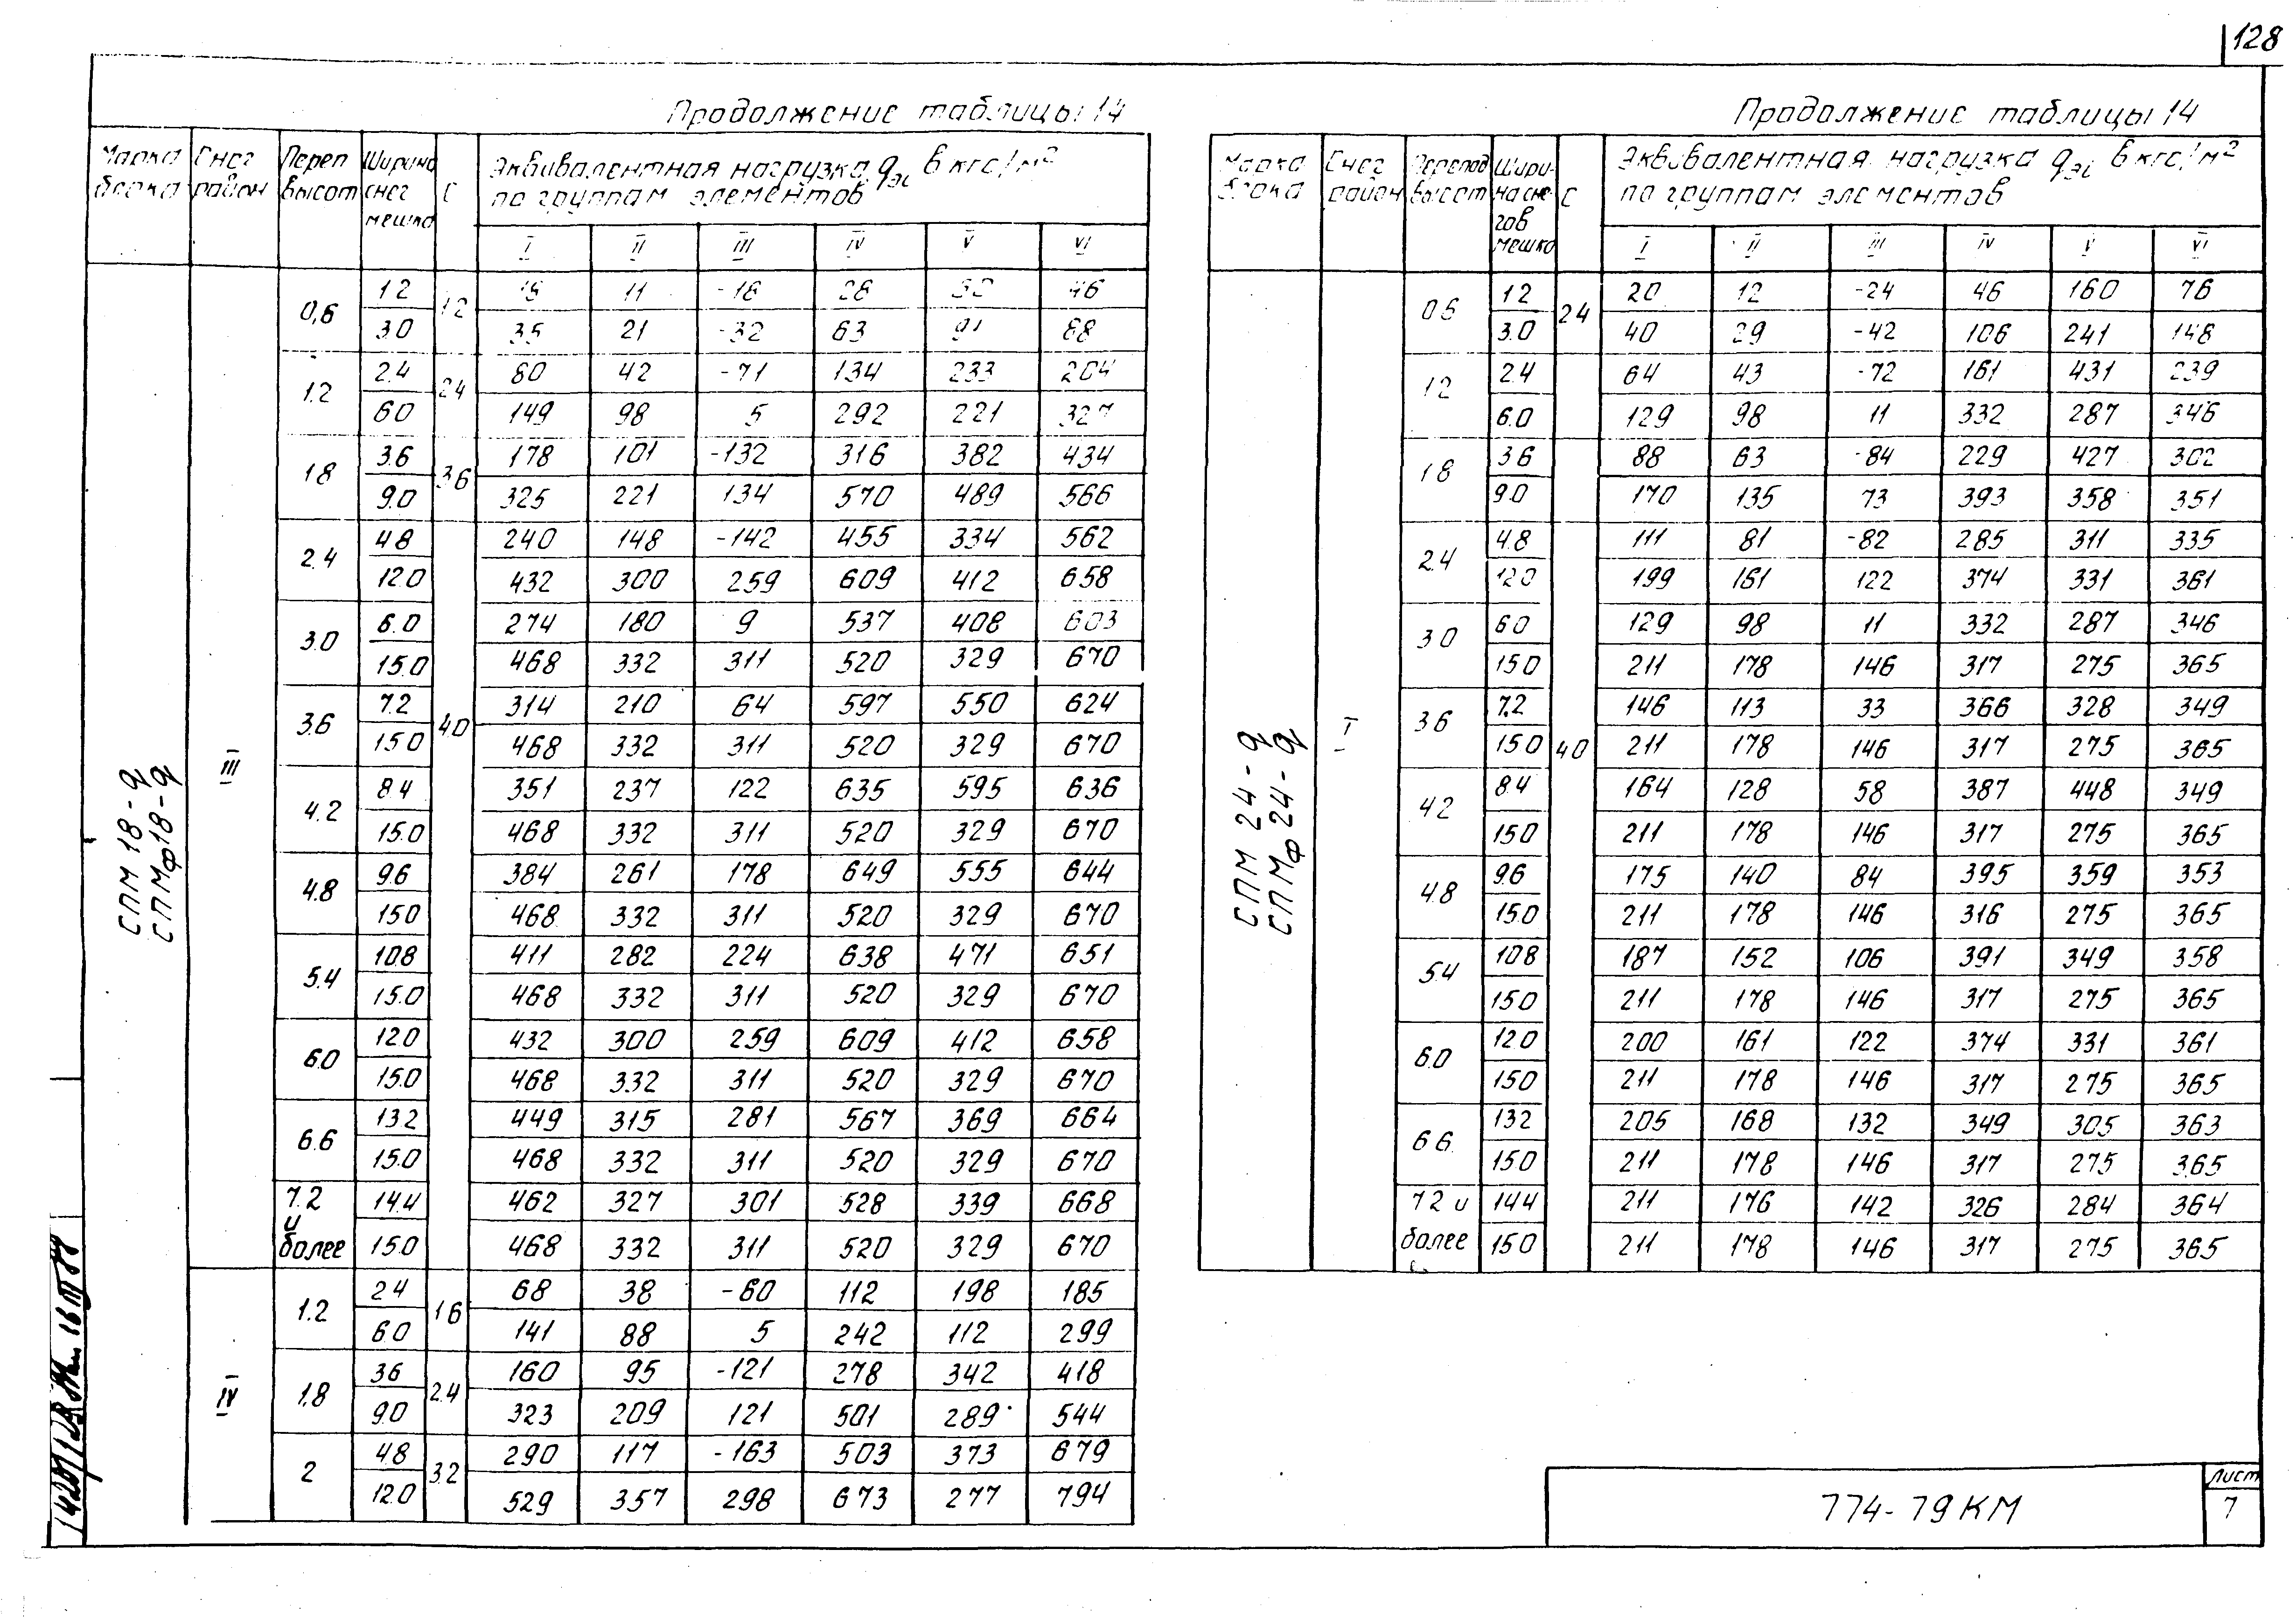 128
Продолжение таблицы 14
Марка блока | Снег район | Переп высот | Ширина снег мешка | С | Эквивалентная нагрузка qэi в кгс/м² по группам элементов
I | II | III | IV | V | VI
СПМ 18-q
СПМф 18-q
III
0,6 | 1.2 | 1.2 | 11 | -18 | 28 | 46
3.0 | 35 | 21 | -32 | 63 | 91 | 88
1.2 | 2.4 | 2.4 | 80 | 42 | -71 | 134 | 233 | 204
6.0 | 149 | 98 | 5 | 292 | 221 | 327
1.8 | 3.6 | 3.6 | 178 | 101 | -132 | 316 | 382 | 434
9.0 | 325 | 221 | 134 | 570 | 489 | 566
2.4 | 4.8 | 4.0 | 240 | 148 | -142 | 455 | 334 | 562
12.0 | 432 | 300 | 259 | 609 | 412 | 658
3.0 | 6.0 | 274 | 180 | 9 | 537 | 408 | 603
15.0 | 468 | 332 | 311 | 520 | 329 | 670
3.6 | 7.2 | 314 | 210 | 64 | 597 | 550 | 624
15.0 | 468 | 332 | 311 | 520 | 329 | 670
4.2 | 8.4 | 351 | 237 | 122 | 635 | 595 | 636
15.0 | 468 | 332 | 311 | 520 | 329 | 670
4.8 | 9.6 | 384 | 261 | 178 | 649 | 555 | 644
15.0 | 468 | 332 | 311 | 520 | 329 | 670
5.4 | 10.8 | 411 | 282 | 224 | 638 | 471 | 651
15.0 | 468 | 332 | 311 | 520 | 329 | 670
6.0 | 12.0 | 432 | 300 | 259 | 609 | 412 | 658
15.0 | 468 | 332 | 311 | 520 | 329 | 670
6.6 | 13.2 | 449 | 315 | 281 | 567 | 369 | 664
15.0 | 468 | 332 | 311 | 520 | 329 | 670
7.2 и более | 14.4 | 462 | 327 | 301 | 528 | 339 | 668
15.0 | 468 | 332 | 311 | 520 | 329 | 670
IV
1.2 | 2.4 | 1.6 | 68 | 38 | -60 | 112 | 198 | 185
6.0 | 141 | 88 | 5 | 242 | 112 | 299
1.8 | 3.6 | 2.4 | 160 | 95 | -121 | 278 | 342 | 418
9.0 | 323 | 209 | 121 | 501 | 289 | 544
2 | 4.8 | 3.2 | 290 | 117 | -163 | 503 | 373 | 679
12.0 | 529 | 357 | 298 | 673 | 277 | 794
Продолжение таблицы 14
Марка блока | Снег район | Перепад высот | Ширина снегов мешка | С | Эквивалентная нагрузка qэi в кгс/м² по группам элементов
I | II | III | IV | V | VI
СПМ 24-q
СПМф 24-q
I
0.6 | 1.2 | 2.4 | 20 | 12 | -24 | 46 | 160 | 76
3.0 | 40 | 29 | -42 | 106 | 241 | 148
1.2 | 2.4 | 64 | 43 | -72 | 161 | 431 | 239
6.0 | 129 | 98 | 11 | 332 | 287 | 346
1.8 | 3.6 | 88 | 63 | -84 | 229 | 427 | 302
9.0 | 170 | 135 | 73 | 393 | 358 | 351
2.4 | 4.8 | 4.0 | 111 | 81 | -82 | 285 | 311 | 335
12.0 | 199 | 161 | 122 | 374 | 331 | 361
3.0 | 6.0 | 129 | 98 | 11 | 332 | 287 | 346
15.0 | 211 | 178 | 146 | 317 | 275 | 365
3.6 | 7.2 | 146 | 113 | 33 | 366 | 328 | 349
15.0 | 211 | 178 | 146 | 317 | 275 | 365
4.2 | 8.4 | 164 | 128 | 58 | 387 | 448 | 349
15.0 | 211 | 178 | 146 | 317 | 275 | 365
4.8 | 9.6 | 175 | 140 | 84 | 395 | 359 | 353
15.0 | 211 | 178 | 146 | 316 | 275 | 365
5.4 | 10.8 | 187 | 152 | 106 | 391 | 349 | 358
15.0 | 211 | 178 | 146 | 317 | 275 | 365
6.0 | 12.0 | 200 | 161 | 122 | 374 | 331 | 361
15.0 | 211 | 178 | 146 | 317 | 275 | 365
6.6 | 13.2 | 205 | 168 | 132 | 349 | 305 | 363
15.0 | 211 | 178 | 146 | 317 | 275 | 365
7.2 и более | 14.4 | 211 | 176 | 142 | 326 | 284 | 364
15.0 | 211 | 178 | 146 | 317 | 275 | 365
774-79КМ
Лист
7